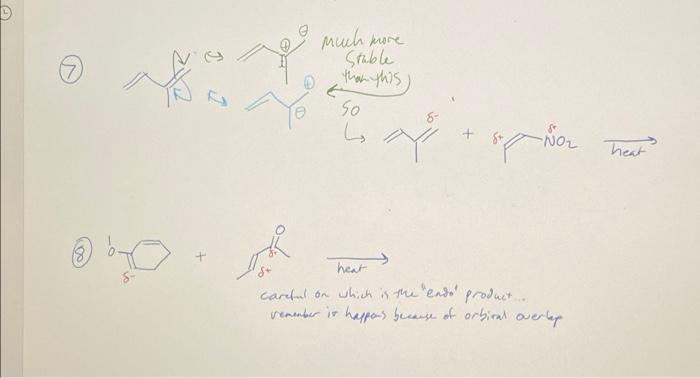 7
much more
stable
than this
so
δ-
+
δ+
δ+
NO2
heat
8
O
O
δ-
+
δ+
δ+
heat
careful on which is the "endo" product...
remember it happens because of orbital overlap